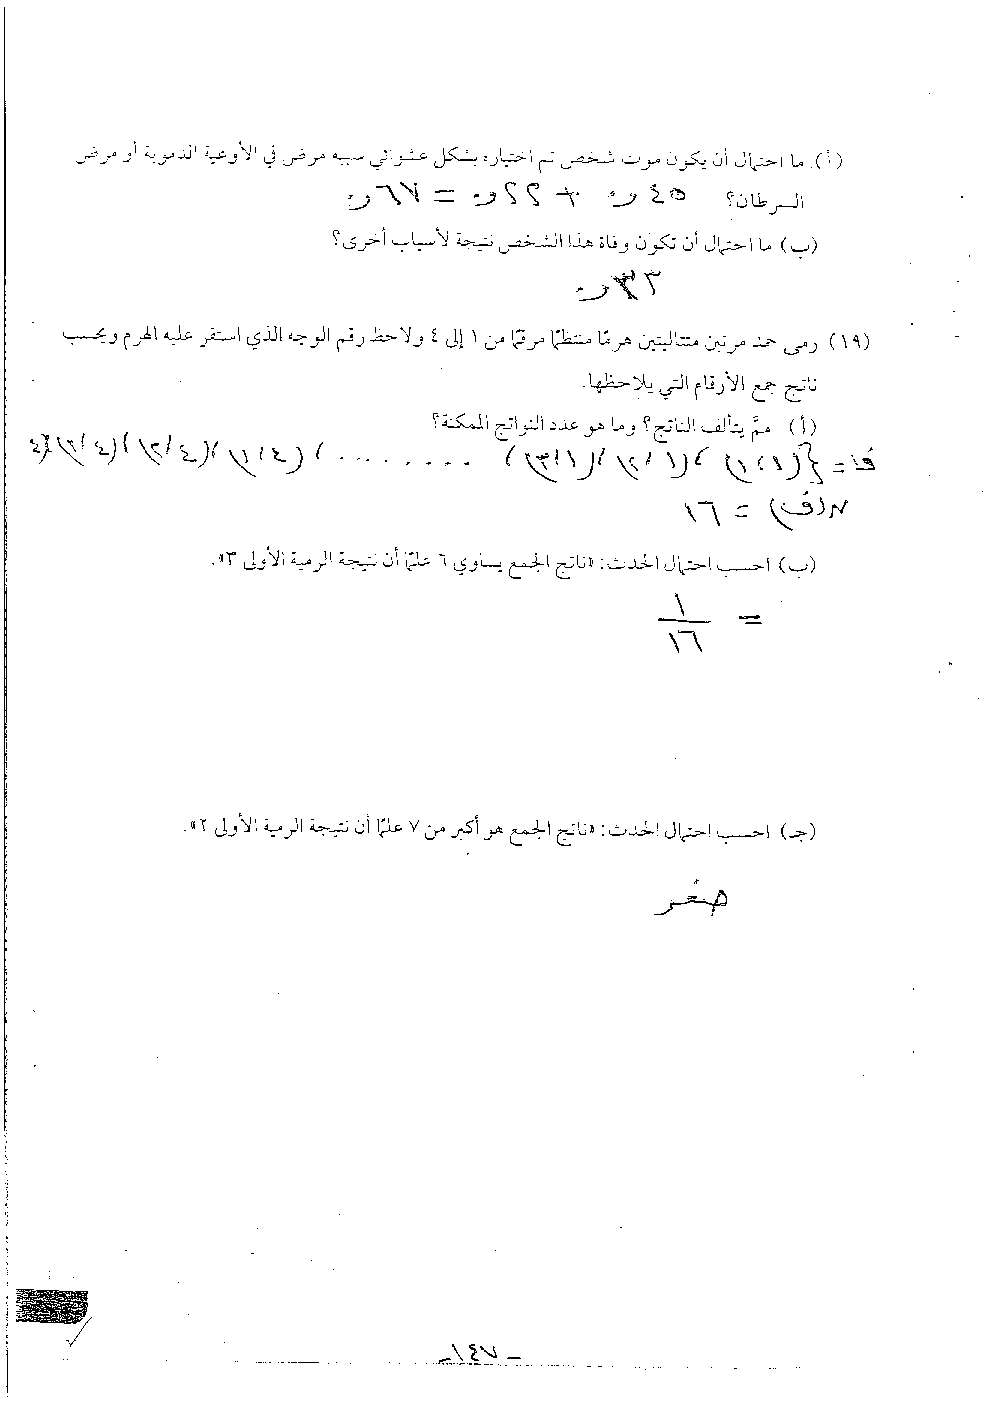 (أ). ما احتمال أن يكون موت شخص تم اختياره بشكل عشوائي سببه مرض في الأوعية الدموية أو مرض
السرطان؟ ٤٥ر٠ + ٢٢ر٠ = ٦٧ر٠
(ب) ما احتمال أن تكون وفاة هذا الشخص نتيجة لأسباب أخرى؟
٣٣ر٠
(١٩) رمى حمد مرتين متتاليتين هرمًا منتظمًا مرقمًا من ١ إلى ٤ ولاحظ رقم الوجه الذي استقر عليه الهرم ويحسب
ناتج جمع الأرقام التي يلاحظها.
(أ) ممَّ يتألف الناتج؟ وما هو عدد النواتج الممكنة؟
ف = {(١،١)،(٢،١)،(٣،١)، ........ ،(١،٤)،(٢،٤)،(٣،٤)
ن(ف) = ١٦
(ب) احسب احتمال الحدث: «ناتج الجمع يساوي ٦ علمًا أن نتيجة الرمية الأولى ٣».
= ١/١٦
(جـ) احسب احتمال الحدث: «ناتج الجمع هو أكبر من ٧ علمًا أن نتيجة الرمية الأولى ٢».
صفر
- ١٤٧ -